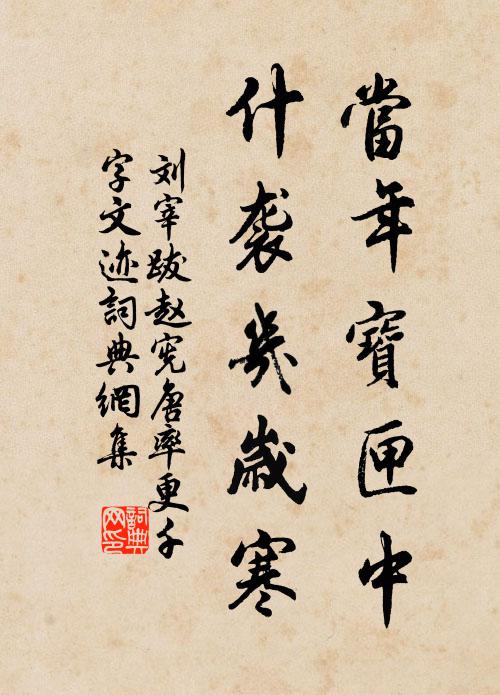 當年寶匣中
什袭幾歲寒
刘宰跋赵宪唐率更千
字文迹詞典網集
詞典
网印